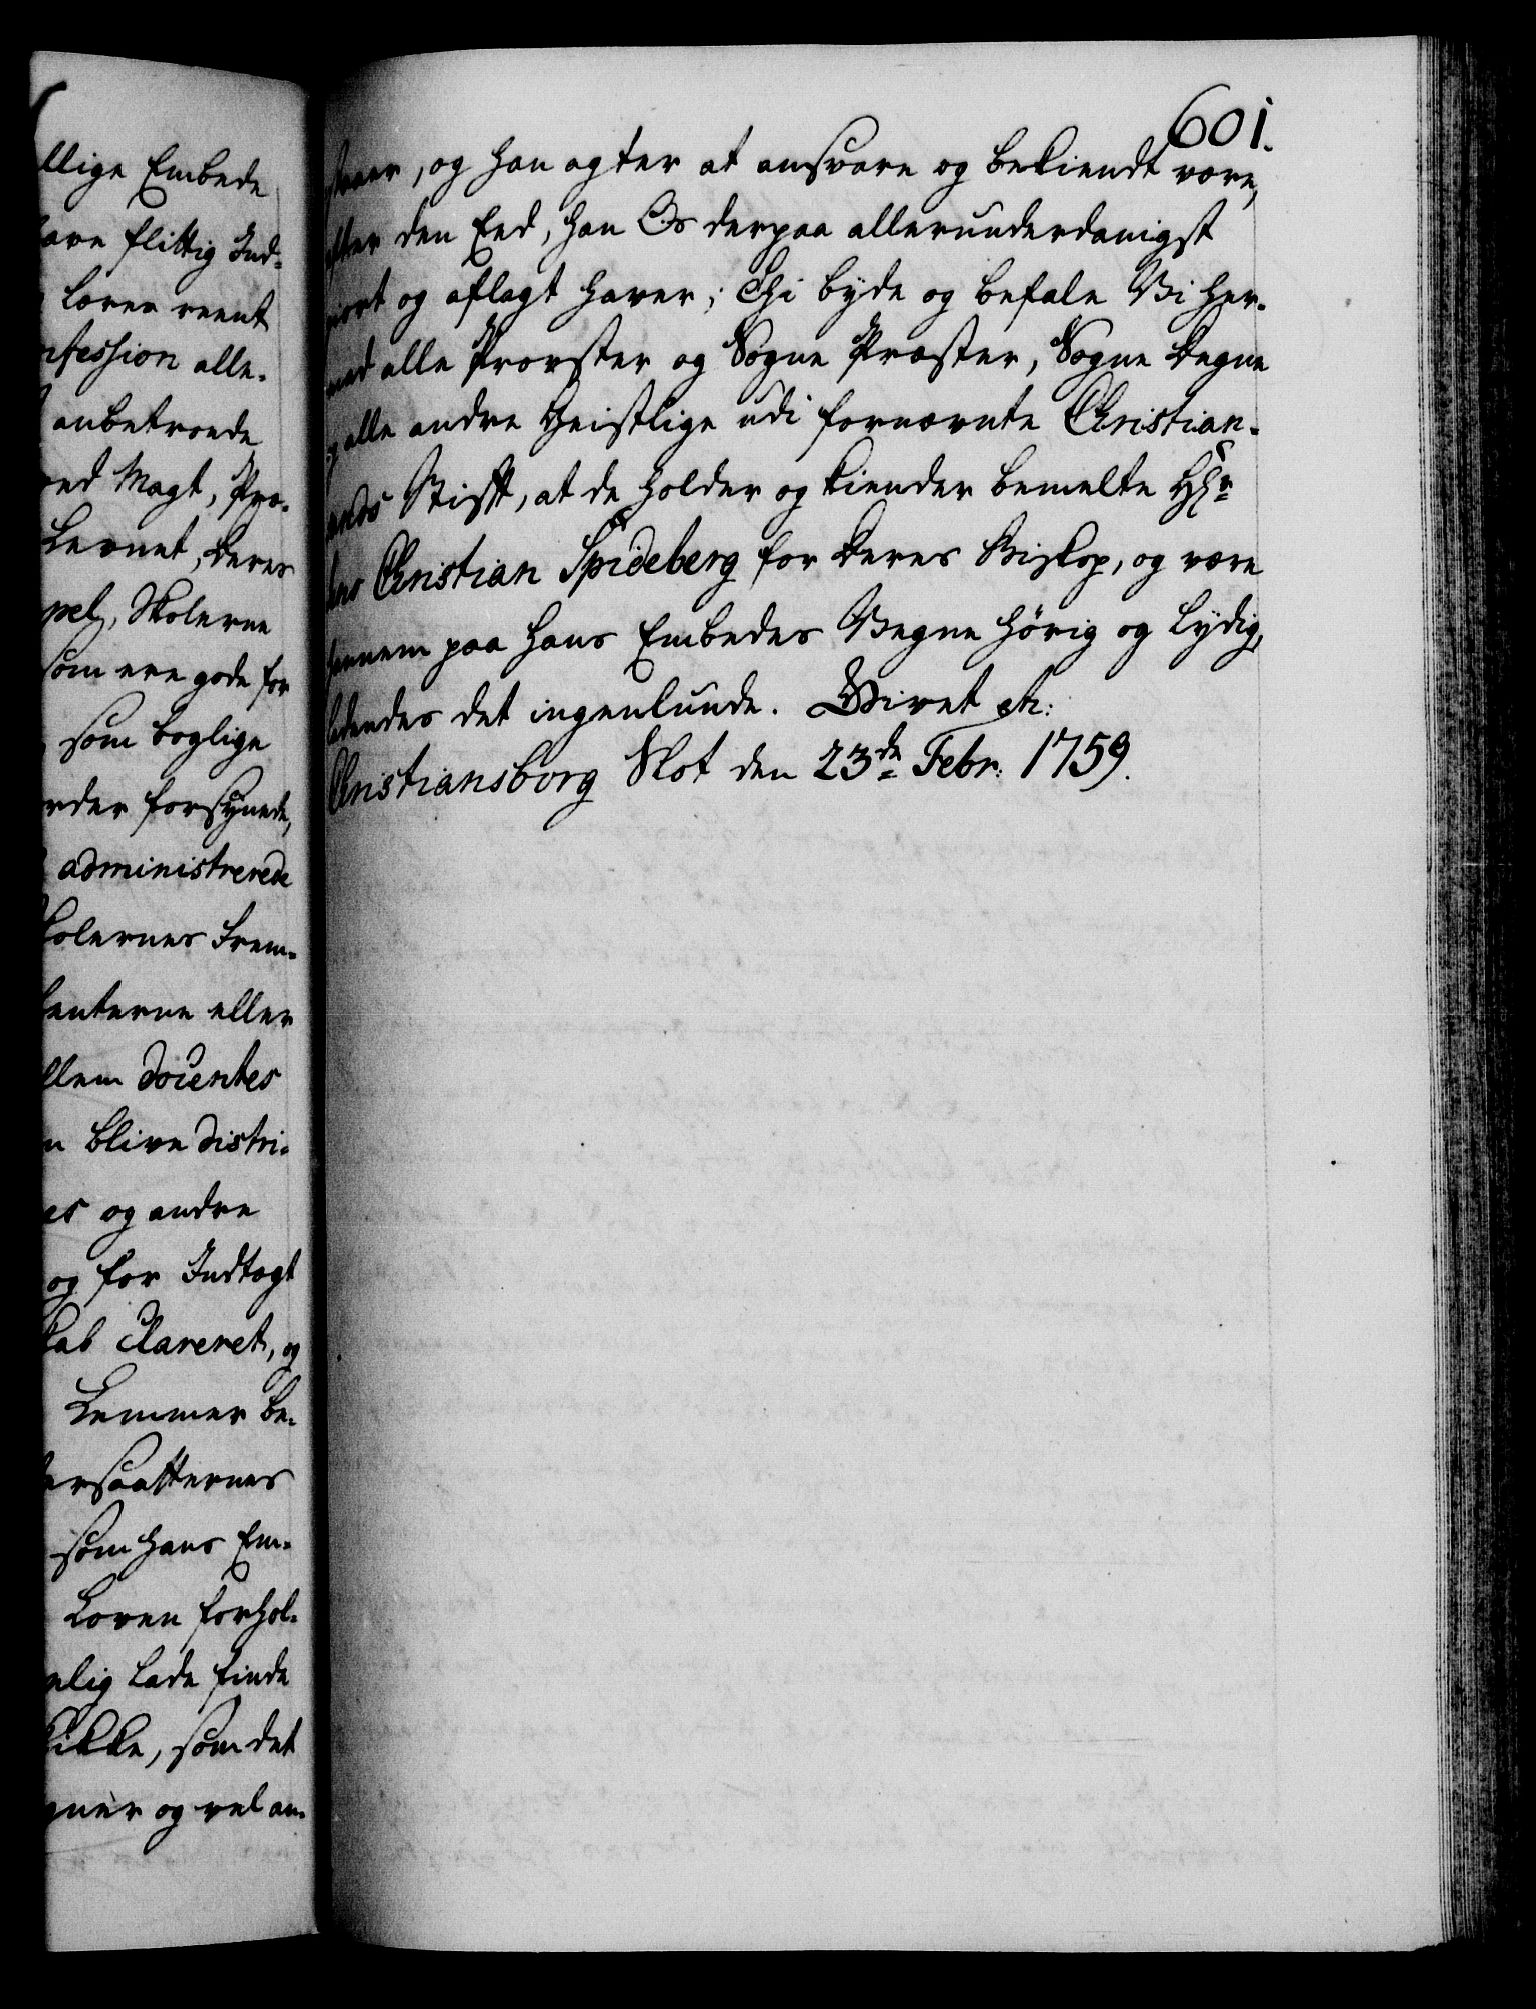 llige Embede
have flittig Ind-
lærer reent
nfession alle-
anbetroede
ved Magt, Præ-
Lærnet, deres
pel, Skolerne
som ere gode for
som boglige
rder forsynede,
administrerede
kolernes Frem-
senterne eller
llem Docentes
n blive distri-
es og andre
og for Indtægt
kab clareret, og
Lemmer be-
ersaatternes
som hans Em-
Loven forhol-
nlig lade finde
kikke, som det
gner og vel an-
601.
staaer, og han agter at ansvare og bekiendt være,
efter den Eed, han Os derpaa allerunderdanigst
giort og aflagt haver; Thi byde og befale Vi her-
med alle Provster og Sogne Præster, Sogne Degne
og alle andre Geistlige udi fornævnte Christian-
sands Stift, at de holder og kiender bemelte Hr.
Jens Christian Spideberg for deres Biskop, og være
hannem paa hans Embedes Vegne hørig og lydig,
ladendes det ingenlunde. Givet etc:
Christiansborg Slot den 23de Febr: 1759.